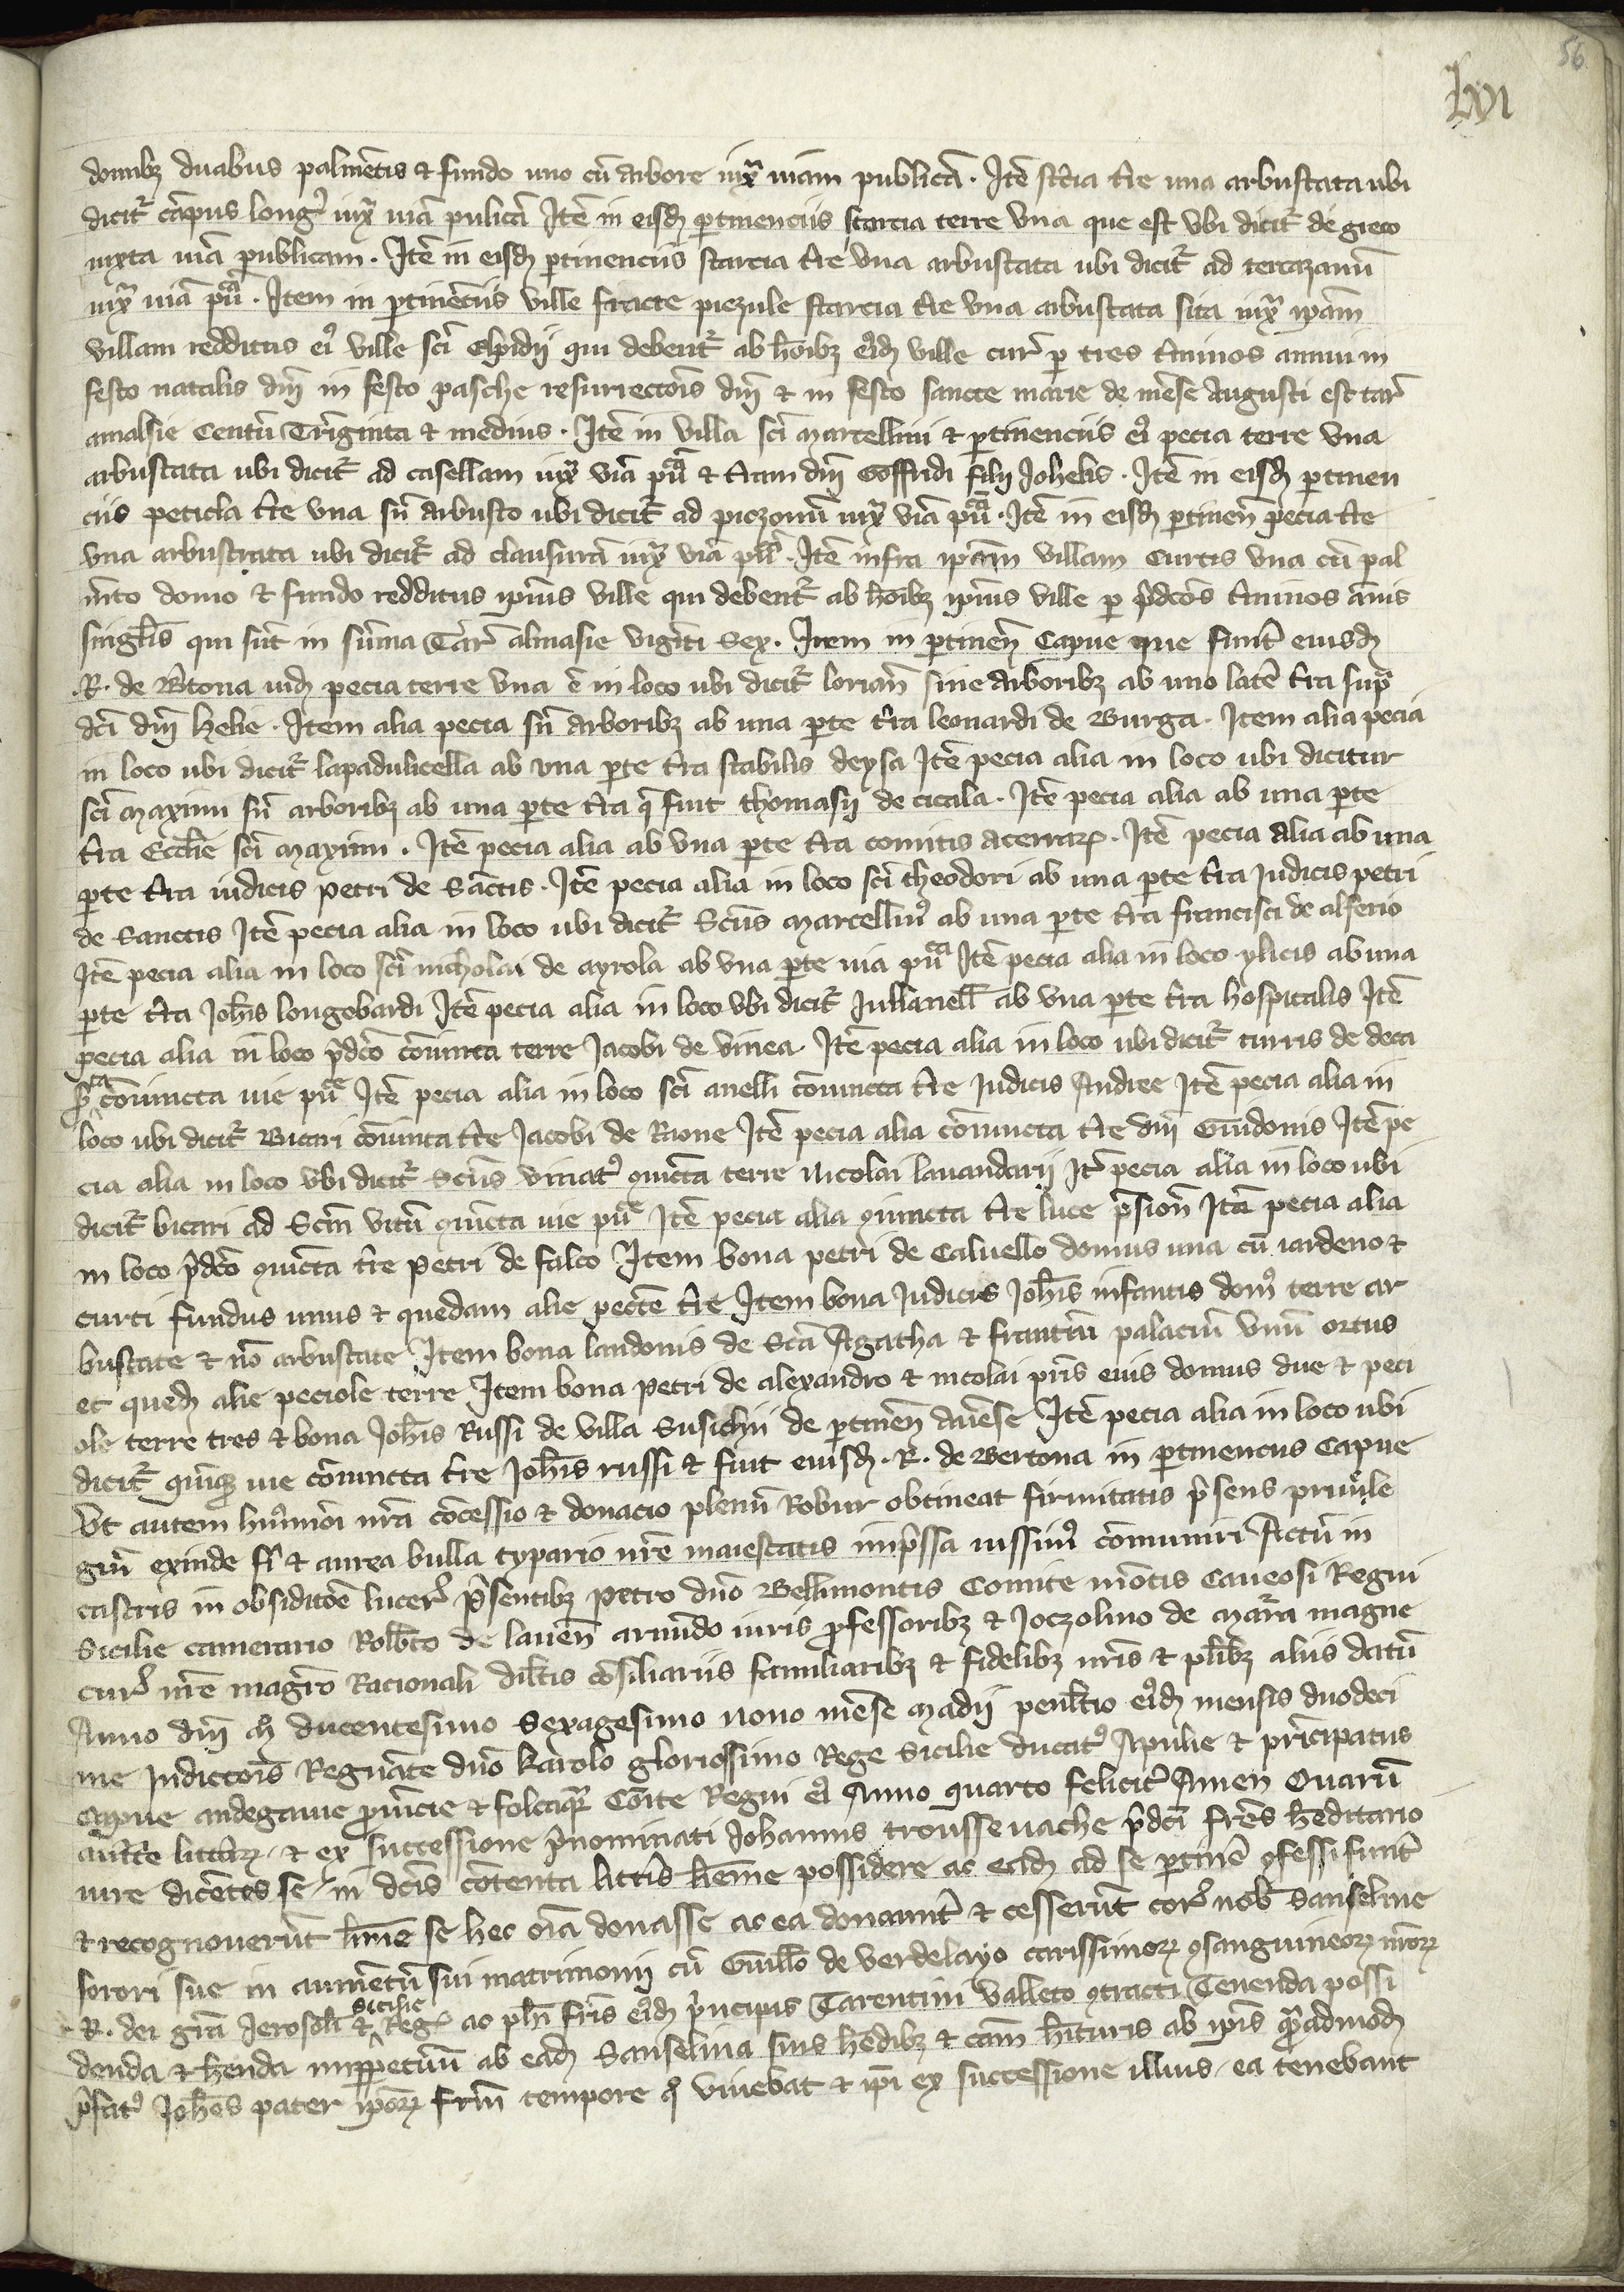 56
lxvi
domibꝫ duabus palmētis ⁊ fundo uno cū arbore iuxᵃ uiam publicā. Itē st̄cia t̄re una arbustata ubi
dicit᷑ cāpus long᷒ iuxᵃ uiā pulicā Itē in eisdꝫ ꝑtinenciis starcia terre vna que est vbi dicit᷑ de greco
iuxta uiā publicam. Itē in eisdꝫ ꝑtinenciis starcia t̄re vna arbustata ubi dicit᷑ ad terrazanū
iuxᵃ uiā pū̄ᵃ. Item in ꝑtinēciis ville fracte piczule starcia t̄re vna arbustata sita iuxᵃ ip̄am
villam redditus ei᷒ ville sc̄i Elpidij qui debent᷑ ab hōibꝫ ei᷒dꝫ ville cur᷑ ꝑ tres t̄minos annui in
festo natalis dn̄i in festo pasche resurrectōis dn̄i ⁊ in festo sancte marie de mēse Augusti est tar᷑
amalfie Centū Triginta ⁊ medius. Itē in villa sc̄i marcellini ⁊ ꝑtinenciis ei᷒ pecia terre vna
arbustata ubi dicit᷑ ad casellam iuxᵃ viā pū̄ᵃ ⁊ t̄ram dn̄i Goffridi filij Johelis. Itē in eisdꝫ ꝑtinen
ciis peticla t̄re vna sn̄ arbusto ubi dicit᷑ ad piczonū iuxᵃ viā pū̄ᵃ. Itē in eisdꝫ ꝑtinen̄ pecia t̄re
vna arbustata ubi dicit᷑ ad clausurā iuxᵃ viā pu᷑. Itē infra ip̄am villam Curtis vna cū pal
m̄to domo ⁊ fundo redditus ip̄ius ville qui debent᷑ ab hōibꝫ ip̄ius ville ꝑ p̄dcōs t̄minos ānis
singl̄is qui sūt in sūma Tar᷑ almafie viginti Sex. Item in ꝑtinen̄ Capue que fuert̄ eiusdꝫ
.R. de B̄tona uidꝫ pecia terre vna ē in loco ubi dicit᷑ lorian̄ sine arboribꝫ ab uno latē t̄ra sup᷑
dc̄i dn̄i helie. Item alia pecia sn̄ arboribꝫ ab una ꝑte t̄ra leonardi de Burga. Item alia pecia
in loco ubi dicit᷑ lapadulicella ab vna ꝑte t̄ra stabilis deysa Itē pecia alia in loco ubi dicitur
sc̄i maximi sn̄ arboribꝫ ab una ꝑte t̄ra q̄ fuit thomasij de cicala. Itē pecia alia ab una ꝑte
t̄ra Ecclīe sc̄i maximi. Itē pecia alia ab vna ꝑte t̄ra comitis acerraꝝ. Itē pecia alia ab una
ꝑte t̄ra iudicis petri de Sāctis. Itē pecia alia in loco sc̄i theodori ab una ꝑte t̄ra Judicis petri
de Sanctis Itē pecia alia in loco ubi dicit᷑ Sc̄us marcellin᷒ ab una ꝑte t̄ra francisci de alferio
Itē pecia alia in loco sc̄i nicholai de ayrola ab vna ꝑte uia pū̄ᵃ Itē pecia alia in loco ylicis ab una
ꝑte t̄ra Joh̄is longobardi Itē pecia alia in loco vbi dicit᷑ Jullanell̄ ab vna ꝑte t̄ra hospitalis Itē
pecia alia in loco p̄dcō cōiuncta terre Jacobi de vinea. Itē pecia alia in loco ubi dicit᷑ turris de deca
cōiuncta uie pū̄ᵉ Itē pecia alia in loco sc̄i anelli cōiuncta t̄re Judicis Andree Itē pecia alia in
loco ubi dicit᷑ Bicari cōiuncta t̄re Jacobi de Raone Itē pecia alia cōiuncta t̄re dn̄i Guidonis Itē pe
cia alia in loco vbi dicit᷑ Sc̄us viuat᷒ ꝯiūcta terre Nicolai lauandarij It᷑ pecia alia in loco ubi
dicit᷑ bicari ad Scm̄ vitū ꝯiūcta uie pū̄ᵉ Itē pecia alia ꝯiuncta t̄re luce p̄sion̄ Itā pecia alia
in loco p̄dcō ꝯiūcta t̄re Petri de falco Item bona petri de Caluello domus una cū iardeno ⁊
curti fundus unus ⁊ quedam alie pectē t̄re Item bona Judicis Joh̄is infantis dom᷒ terre ar
bustate ⁊ nō arbustate Item bona landonis de Scā Agatha ⁊ frantrū palaciū vnū ortus
et quedꝫ alie peciole terre Item bona Petri de alexandro ⁊ nicolai pr̄is euis domus due ⁊ peci
ole terre tres ⁊ bona Joh̄is Russi de villa Susichii de ꝑtinen̄ auēse Itē pecia alia in loco ubi
dicit᷑ quīqꝫ uie cōiuncta t̄re Joh̄is russi ⁊ fuit eiusdꝫ .R. de Bertona in ꝑtinenciis Capue
Vt autem hui᷒mōi nr̄a cōcessio ⁊ donacio plenū Robur obtineat firmitatis p̄sens priuile
giū exinde fi᷑ ⁊ aurea bulla typario nr̄e maiestatis imp̄ssa iussim᷒ cōmuniri Actū in
castris in obsidiōe lucer᷑ p̄sentibꝫ Petro dn̄o Bellimontis Comite mōtis Caueosi Regni
Sicilie camerario Robt̄o de lauen̄ armūdo iuris ꝓfessoribꝫ ⁊ Joczolino de Marra magne
cur᷑ nr̄e magr̄o Racionali dil̄tis cōsiliariis familiaribꝫ ⁊ fidelibꝫ nr̄is ⁊ pl̄ibꝫ aliis datū
Anno dn̄i Mͦ ducentesimo Sexagesimo nono mēse Madij penl̄tio ei᷒dꝫ mensis duodeci
me Indictōis Regnāte dn̄o karolo gloriosissimo Rege Sicilie ducat᷒ Apulie ⁊ prīcipatus
Capue andegauie ꝓuīcie ⁊ folcaqr᷑ Cōite Regni ei᷒ Anno quarto felicit᷑ Amen Quarū
auctē litt̄arꝝ ⁊ ex successione p̄nominati Johannis troussevache p̄dc̄i fr̄es h̄editario
iure dicētes se in dc̄is cōtenta litt̄is h̄ēme possidere ac eadꝫ ad se ꝑtinē ꝯfessi funt̄
⁊ recognouerūt h̄imē se hec oīa donasse ac ea donauert̄ ⁊ cesserūt cor᷑ nob̄ Sanseline
sorori sue in aumētū sui matrimonij cū Guill̄o de verdelayo carissimorꝝ ꝯsanguineorꝝ nr̄orꝝ
.R. dei grā Jerosol̄ ⁊ Sicilie Reg᷑ ac ph̄i fr̄is ei᷒dꝫ p̄ncipis Tarentini valleto ꝯtracti Tenenda possi
denda ⁊ h̄enda imꝑpetuū ab eadꝫ Sanselina suis h̄edibꝫ ⁊ cām h̄ituris ab ip̄is ꝓadmodꝫ
p̄fat᷒ Joh̄es pater ip̄orꝝ frm̄ tempore qͦ viuebat ⁊ ip̄i ex successione illius ea tenebant